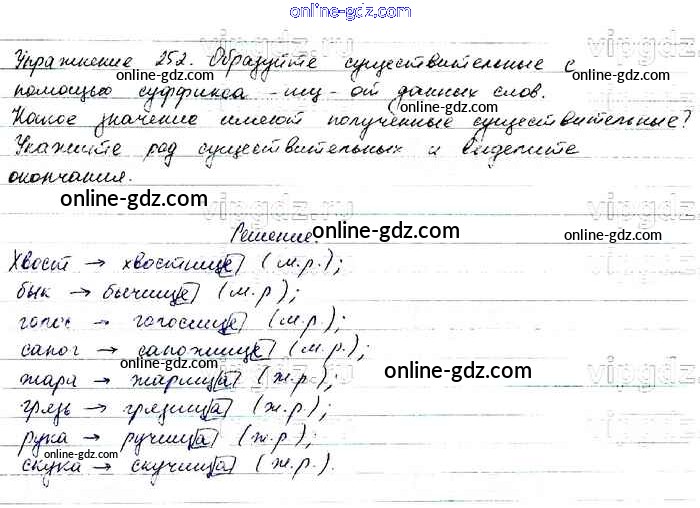 online-gdz.com
Упражнение 252. Образуйте существительные с
помощью суффикса -ищ- от данных слов.
Какое значение имеют полученные существительные?
Укажите род существительных и выделите
окончания.
Решение.
Хвост → хвостище (м.р.);
бык → бычище (м.р);
голос → голосище (м.р.);
сапог → сапожище (м.р.);
жара → жарища (ж.р.);
грязь → грязища (ж.р.);
рука → ручища (ж.р.);
скука → скучища (ж.р.).
online-gdz.com
online-gdz.com
online-gdz.com
online-gdz.com
online-gdz.com
online-gdz.com
online-gdz.com
online-gdz.com
online-gdz.com
online-gdz.com
online-gdz.com
online-gdz.com